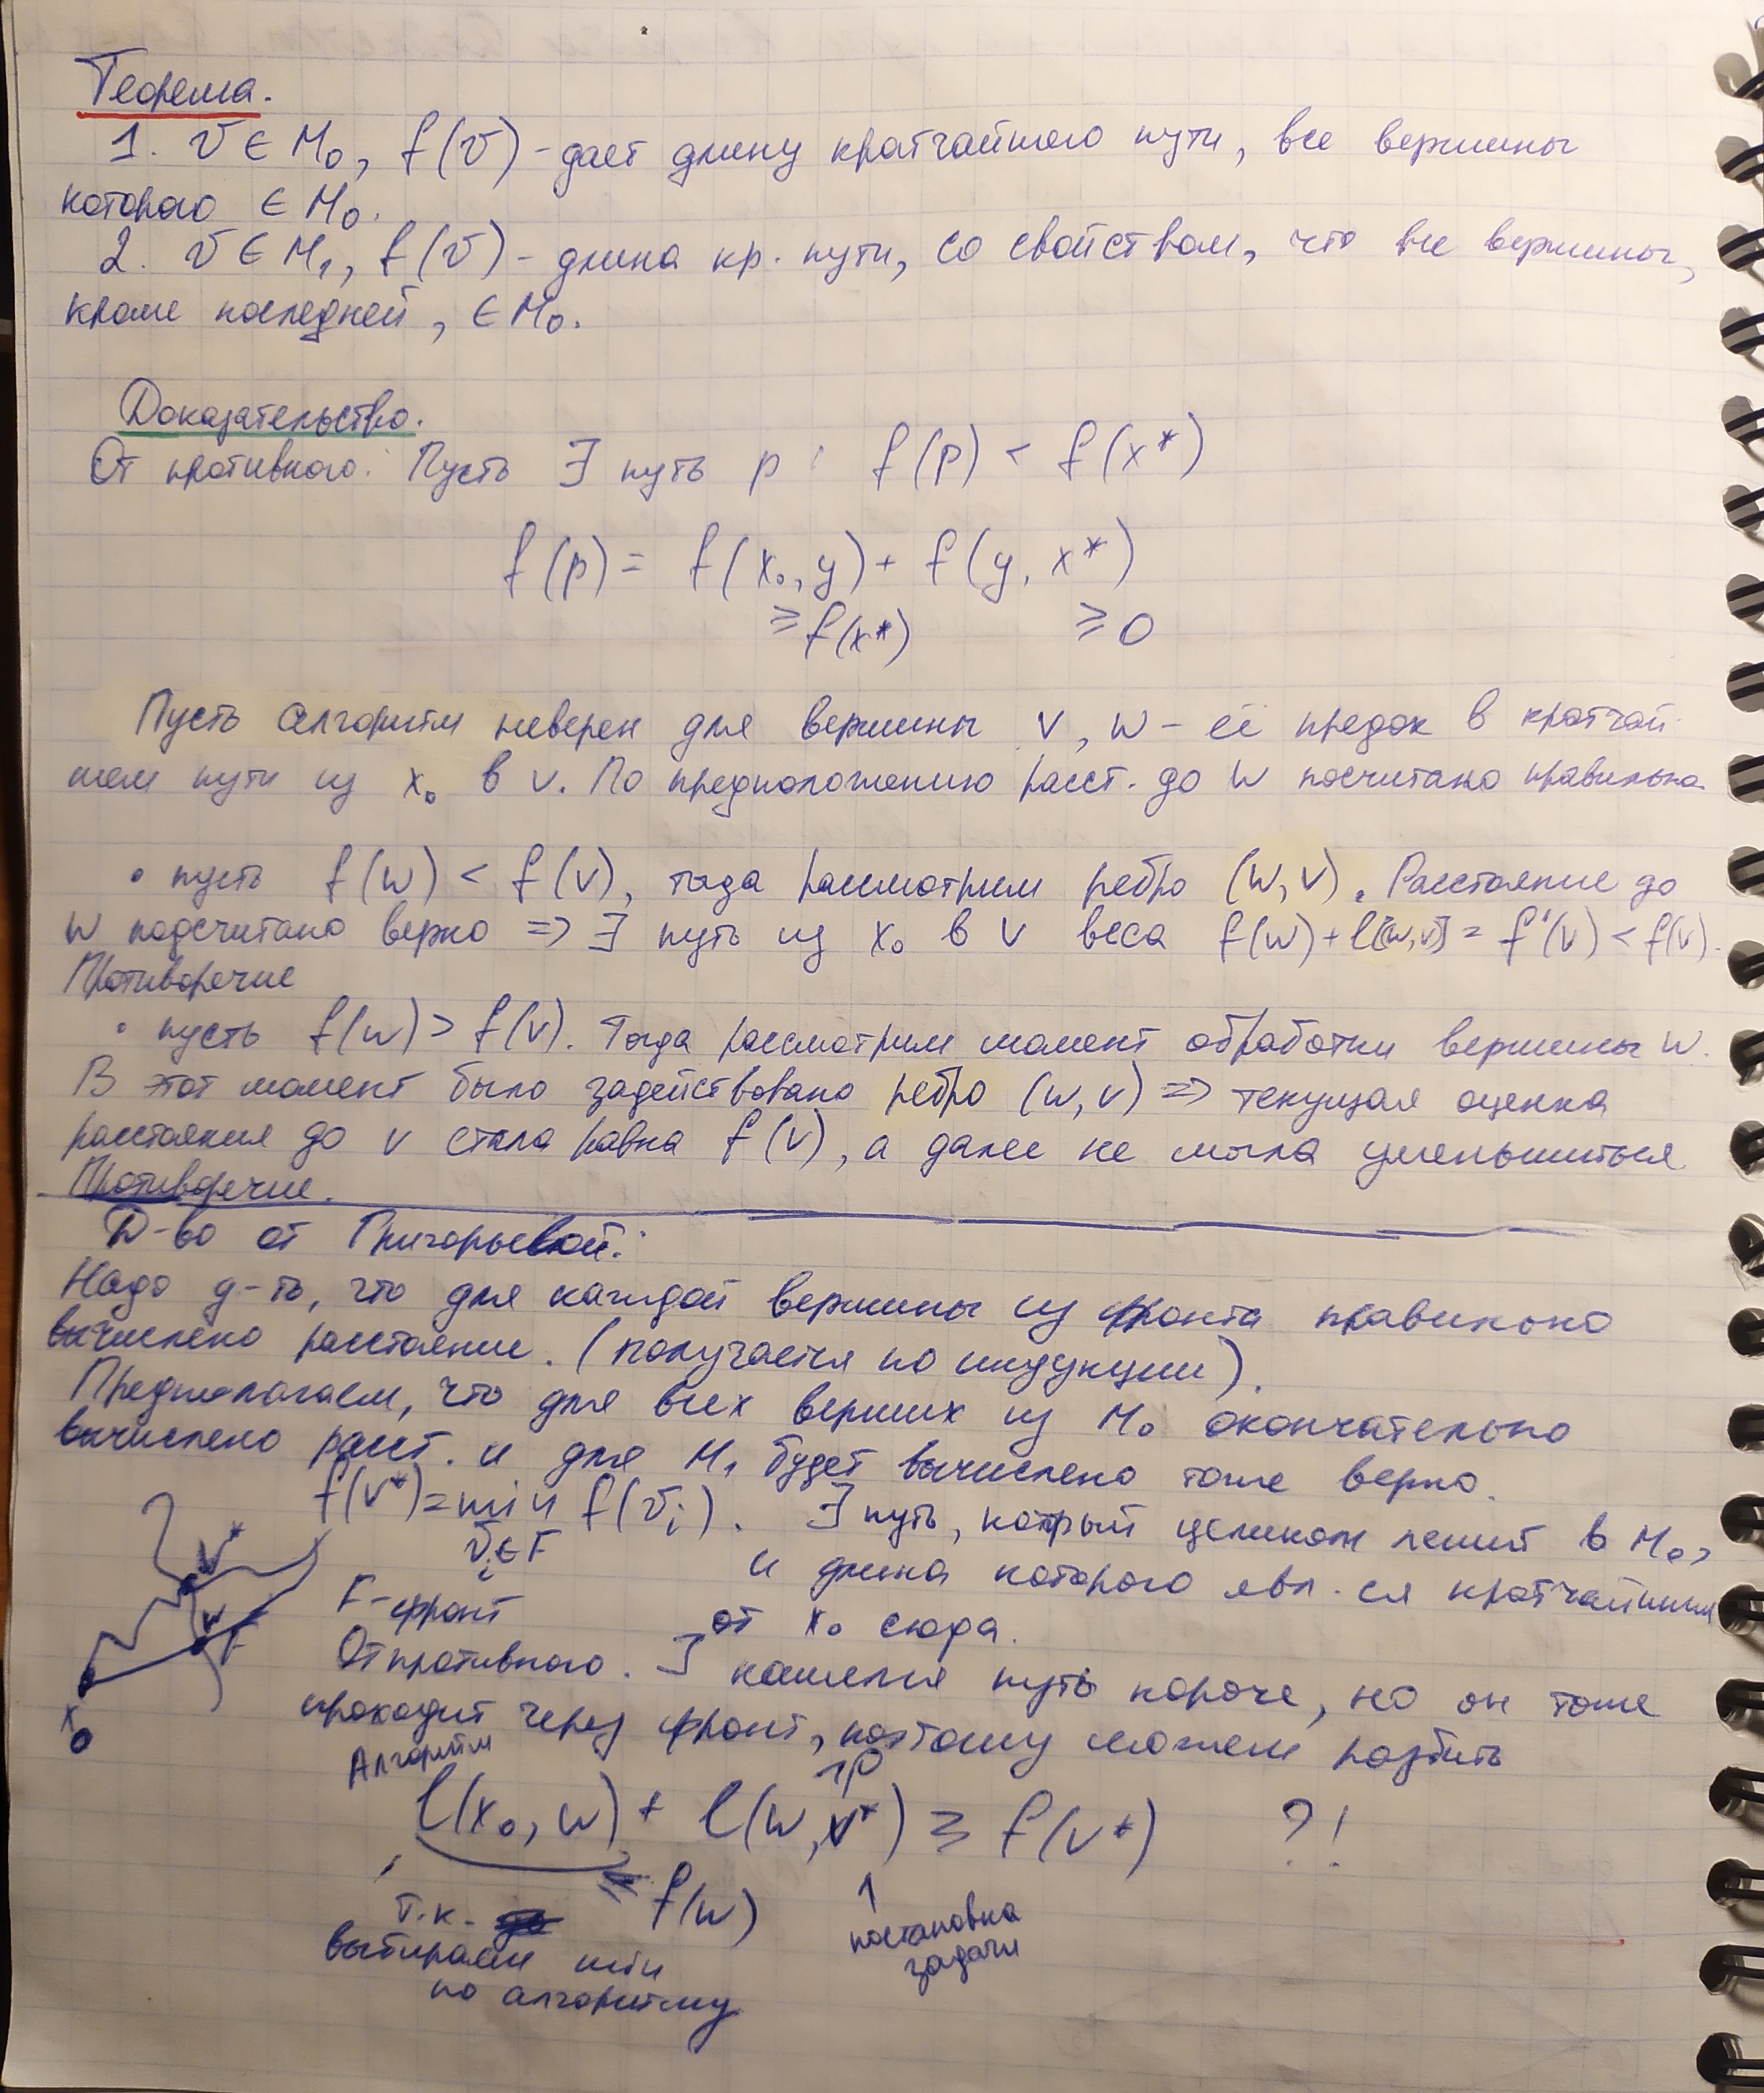 Теорема.
1. v ∈ M₀, f(v) - дает длину кратчайшего пути, все вершины
которого ∈ M₀.
2. v ∈ M₁, f(v) - длина кр. пути, со свойством, что все вершины,
кроме последней, ∈ M₀.
Доказательство.
От противного: Пусть ∃ путь p : f(p) < f(x*)
f(p) = f(x₀, y) + f(y, x*)
≥ f(x*) ≥ 0
Пусть алгоритм неверен для вершины v, w - её предок в кратчай-
шем пути из x₀ в v. По предположению расст. до w посчитано правильно.
• пусть f(w) < f(v), тогда рассмотрим ребро (w, v). Расстояние до
w подсчитано верно => ∃ путь из x₀ в v веса f(w) + l[w,v] = f'(v) < f(v).
Противоречие
• пусть f(w) > f(v). Тогда рассмотрим момент обработки вершины w.
В этот момент было задействовано ребро (w, v) => текущая оценка
расстояния до v стала равна f(v), а далее не могла уменьшиться
Противоречие.
Д-во от Григорьевой:
Надо д-ть, что для каждой вершины из фронта правильно
вычислено расстояние. (получается по индукции).
Предполагаем, что для всех верших из M₀ окончательно
вычислено расст. и для M₁ будет вычислено тоже верно.
f(v*) = min f(vᵢ). ∃ путь, который целиком лежит в M₀,
vᵢ ∈ F и длина которого явл-ся кратчайшим
F - фронт от x₀ сюда.
От противного. ∃ нашелся путь короче, но он тоже
проходит через фронт, поэтому можем разбить
v*
w
F
x₀
Алгоритм
l(x₀, w) + l(w, v*) ≥ f(v*) ?!
≤ f(w)
т.к.
выбираем min
по алгоритму
постановка
задачи